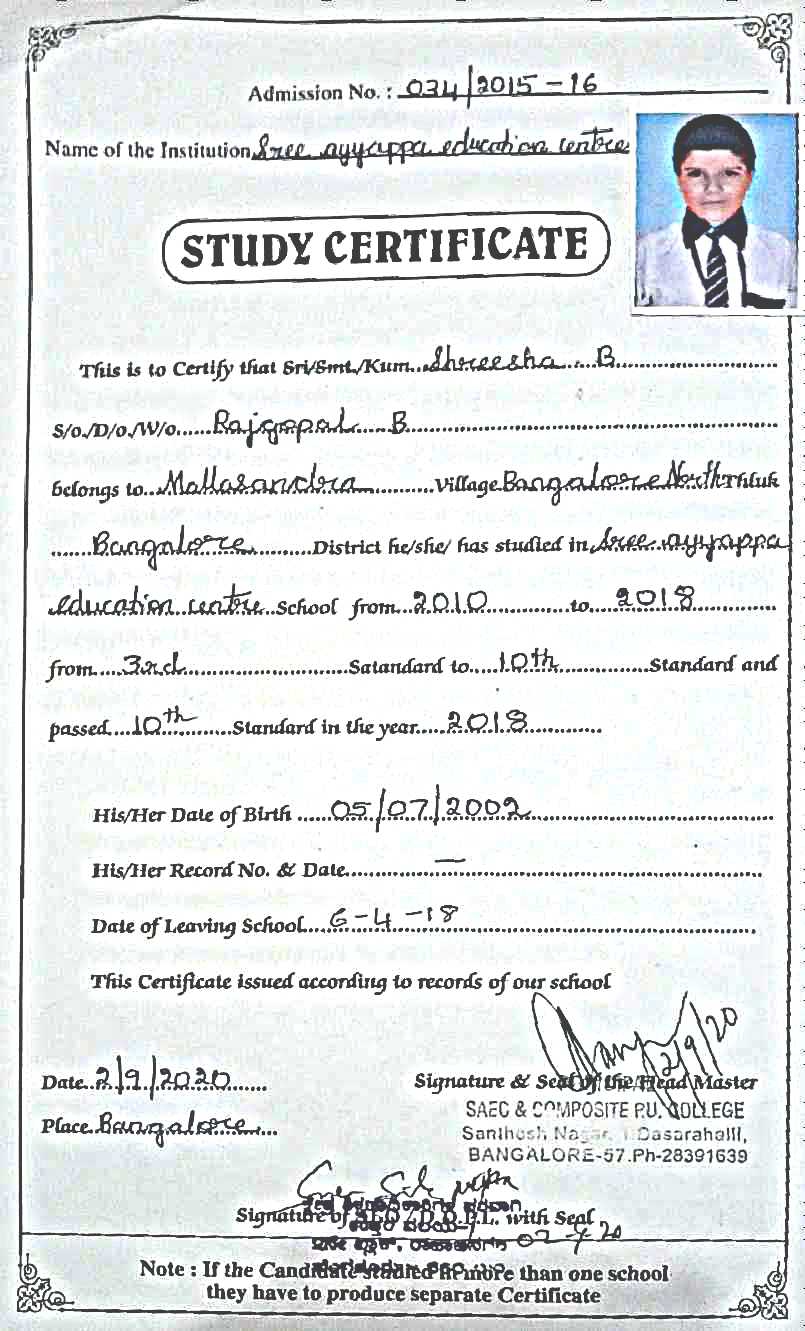 Admission No. : 034/2015-16
Name of the Institution Sree ayyappa education centre
STUDY CERTIFICATE
This is to Certify that Sri/Smt./Kum...Shreesha. B
S/o./D/o./W/o......Rajgopal B
belongs to...Mallasandra...Village Bangalore North Thluk
......Bangalore......District he/she/ has studied in Sree ayyappa
education centre School from...2010...to...2018
from...3rd...Satandard to...10th...Standard and
passed...10th...Standard in the year...2018
His/Her Date of Birth......05/07/2002
His/Her Record No. & Date...—
Date of Leaving School...6-4-18
This Certificate issued according to records of our school
2/9/20
Date...2/9/2020
Signature & Seal of the Head Master
Place...Bangalore...
SAEC & COMPOSITE P.U. COLLEGE
Santhosh Nagar, T.Dasarahalli,
BANGALORE-57.Ph-28391639
Signature of with Seal
Note : If the Candidate studied in more than one school
they have to produce separate Certificate